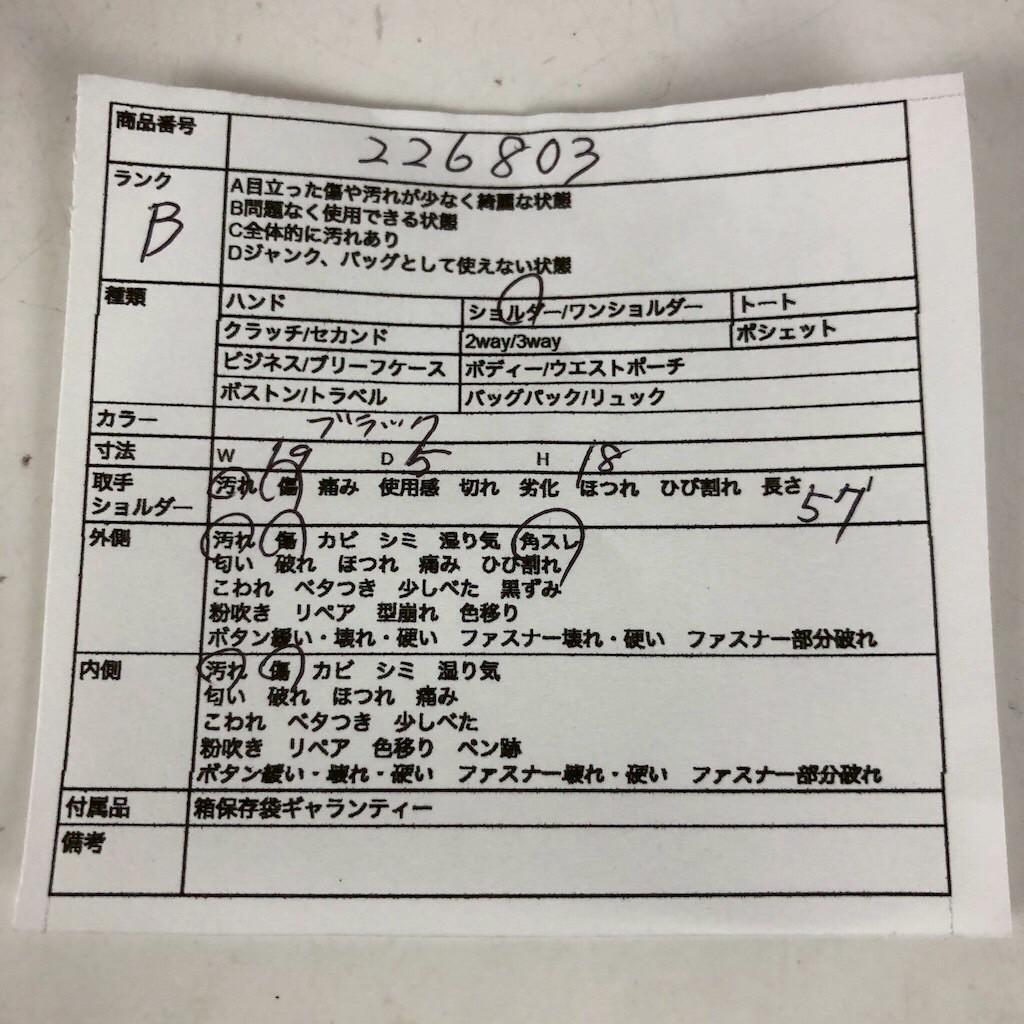 商品番号 226803
ランク B
A目立った傷や汚れが少なく綺麗な状態
B問題なく使用できる状態
C全体的に汚れあり
Dジャンク、バッグとして使えない状態
種類 ハンド ショルダー/ワンショルダー トート
クラッチ/セカンド 2way/3way ポシェット
ビジネス/ブリーフケース ボディー/ウエストポーチ
ボストン/トラベル バッグパック/リュック
カラー ブラック
寸法 W 19 D 5 H 18
取手 汚れ 傷 痛み 使用感 切れ 劣化 ほつれ ひび割れ 長さ 57
ショルダー
外側 汚れ 傷 カビ シミ 湿り気 角スレ
匂い 破れ ほつれ 痛み ひび割れ
こわれ ベタつき 少しべた 黒ずみ
粉吹き リペア 型崩れ 色移り
ボタン緩い・壊れ・硬い ファスナー壊れ・硬い ファスナー部分破れ
内側 汚れ 傷 カビ シミ 湿り気
匂い 破れ ほつれ 痛み
こわれ ベタつき 少しべた
粉吹き リペア 色移り ペン跡
ボタン緩い・壊れ・硬い ファスナー壊れ・硬い ファスナー部分破れ
付属品 箱保存袋ギャランティー
備考